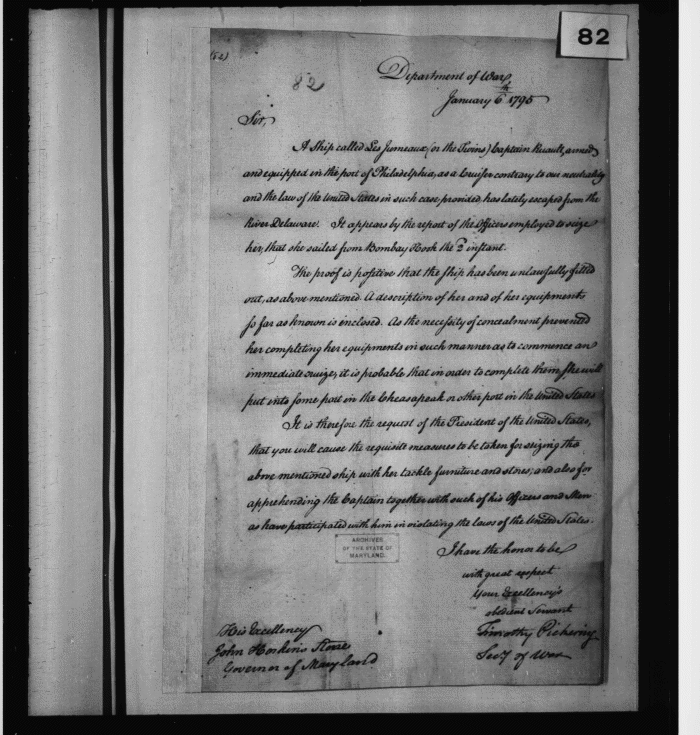 82
(52)
82
Department of War,
January 6th 1795
Sir,
A Ship called Les Jumeaux (or the Twins) Captain Ruault, armed
and equipped in the port of Philadelphia, as a Cruiser contrary to our neutrality
and the law of the United States in such case provided, has lately escaped from the
River Delaware. It appears by the report of the Officers employed to seize
her, that she sailed from Bombay Hook the 2d instant.
The proof is positive that the ship has been unlawfully fitted
out, as above mentioned. A description of her and of her equipments
so far as known is inclosed. As the necessity of concealment prevented
her completing her equipments in such manner as to commence an
immediate cruize, it is probable that in order to complete them she will
put into some port in the Cheasapeak or other port in the United States
It is therefore the request of the President of the United States,
that you will cause the requisite measures to be taken for seizing the
above mentioned ship with her tackle furniture and stores, and also for
apprehending the Captain together with such of his Officers and Men
as have participated with him in violating the laws of the United States.
ARCHIVES
OF THE STATE OF
MARYLAND.
I have the honor to be
with great respect
your Excellency's
obedient Servant
Timothy Pickering
Secy of War
His Excellency
John Hoskins Stone
Governor of Maryland